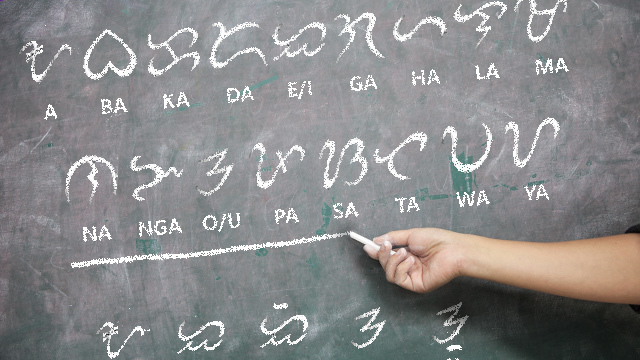 ᜀ ᜊ ᜃ ᜇ ᜁ ᜄ ᜑ ᜎ ᜋ
A BA KA DA E/I GA HA LA MA
ᜈ ᜅ ᜂ ᜉ ᜐ ᜆ ᜏ ᜌ
NA NGA O/U PA SA TA WA YA
ᜀ ᜁ ᜁᜒ ᜂ ᜂᜓ